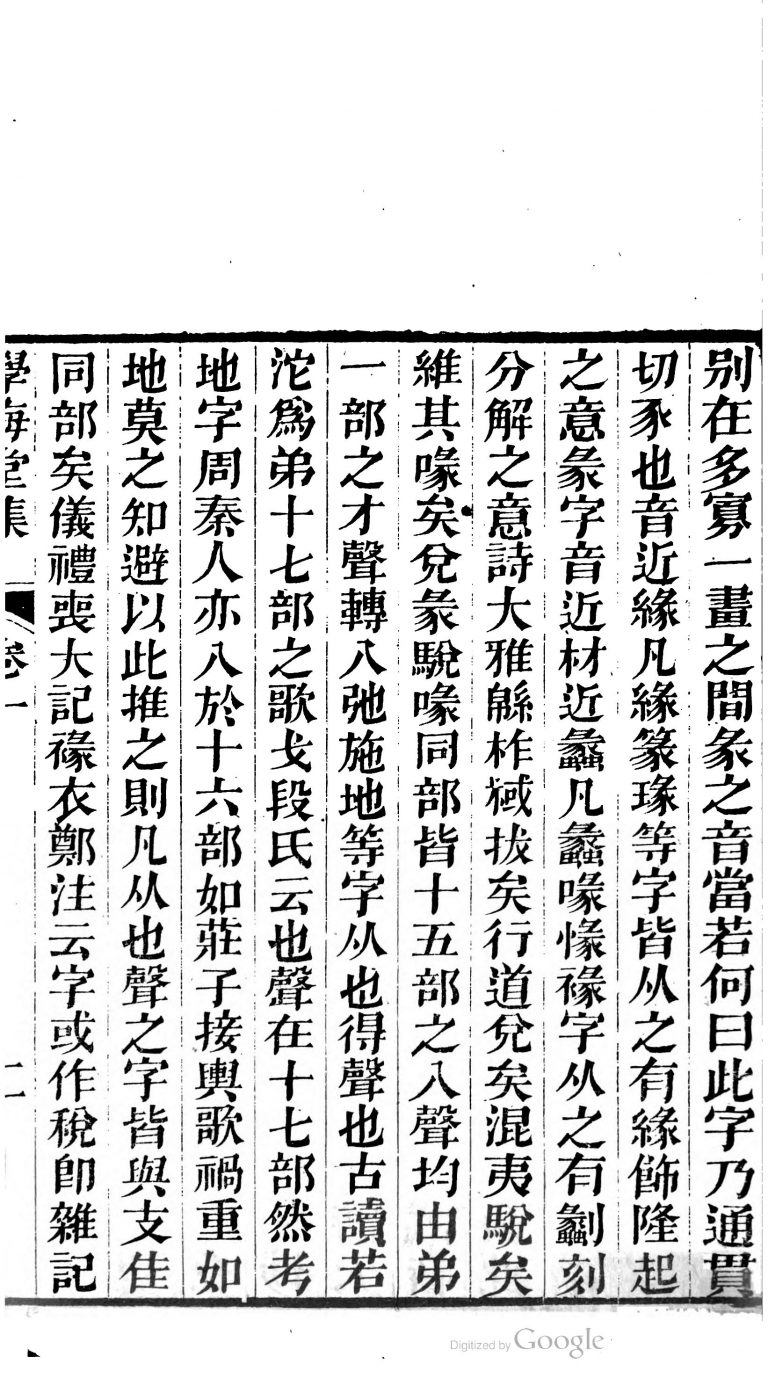 別在多寡一畫之間彖之音當若何曰此字乃通貫
切豕也音近緣凡緣篆瑑等字皆从之有緣飾隆起
之意彖字音近材近蠡凡蠡喙愫禒字从之有劙刻
分解之意詩大雅緜柞棫拔矣行道兌矣混夷駾矣
維其喙矣兌彖駾喙同部皆十五部之入聲均由弟
一部之才聲轉入弛施地等字从也得聲也古讀若
沱爲弟十七部之歌戈段氏云也聲在十七部然考
地字周秦人亦入於十六部如莊子接輿歌禍重如
地莫之知避以此推之則凡从也聲之字皆與支佳
同部矣儀禮喪大記褖衣鄭注云字或作稅卽雜記
學海堂集 卷一 二
Digitized by Google